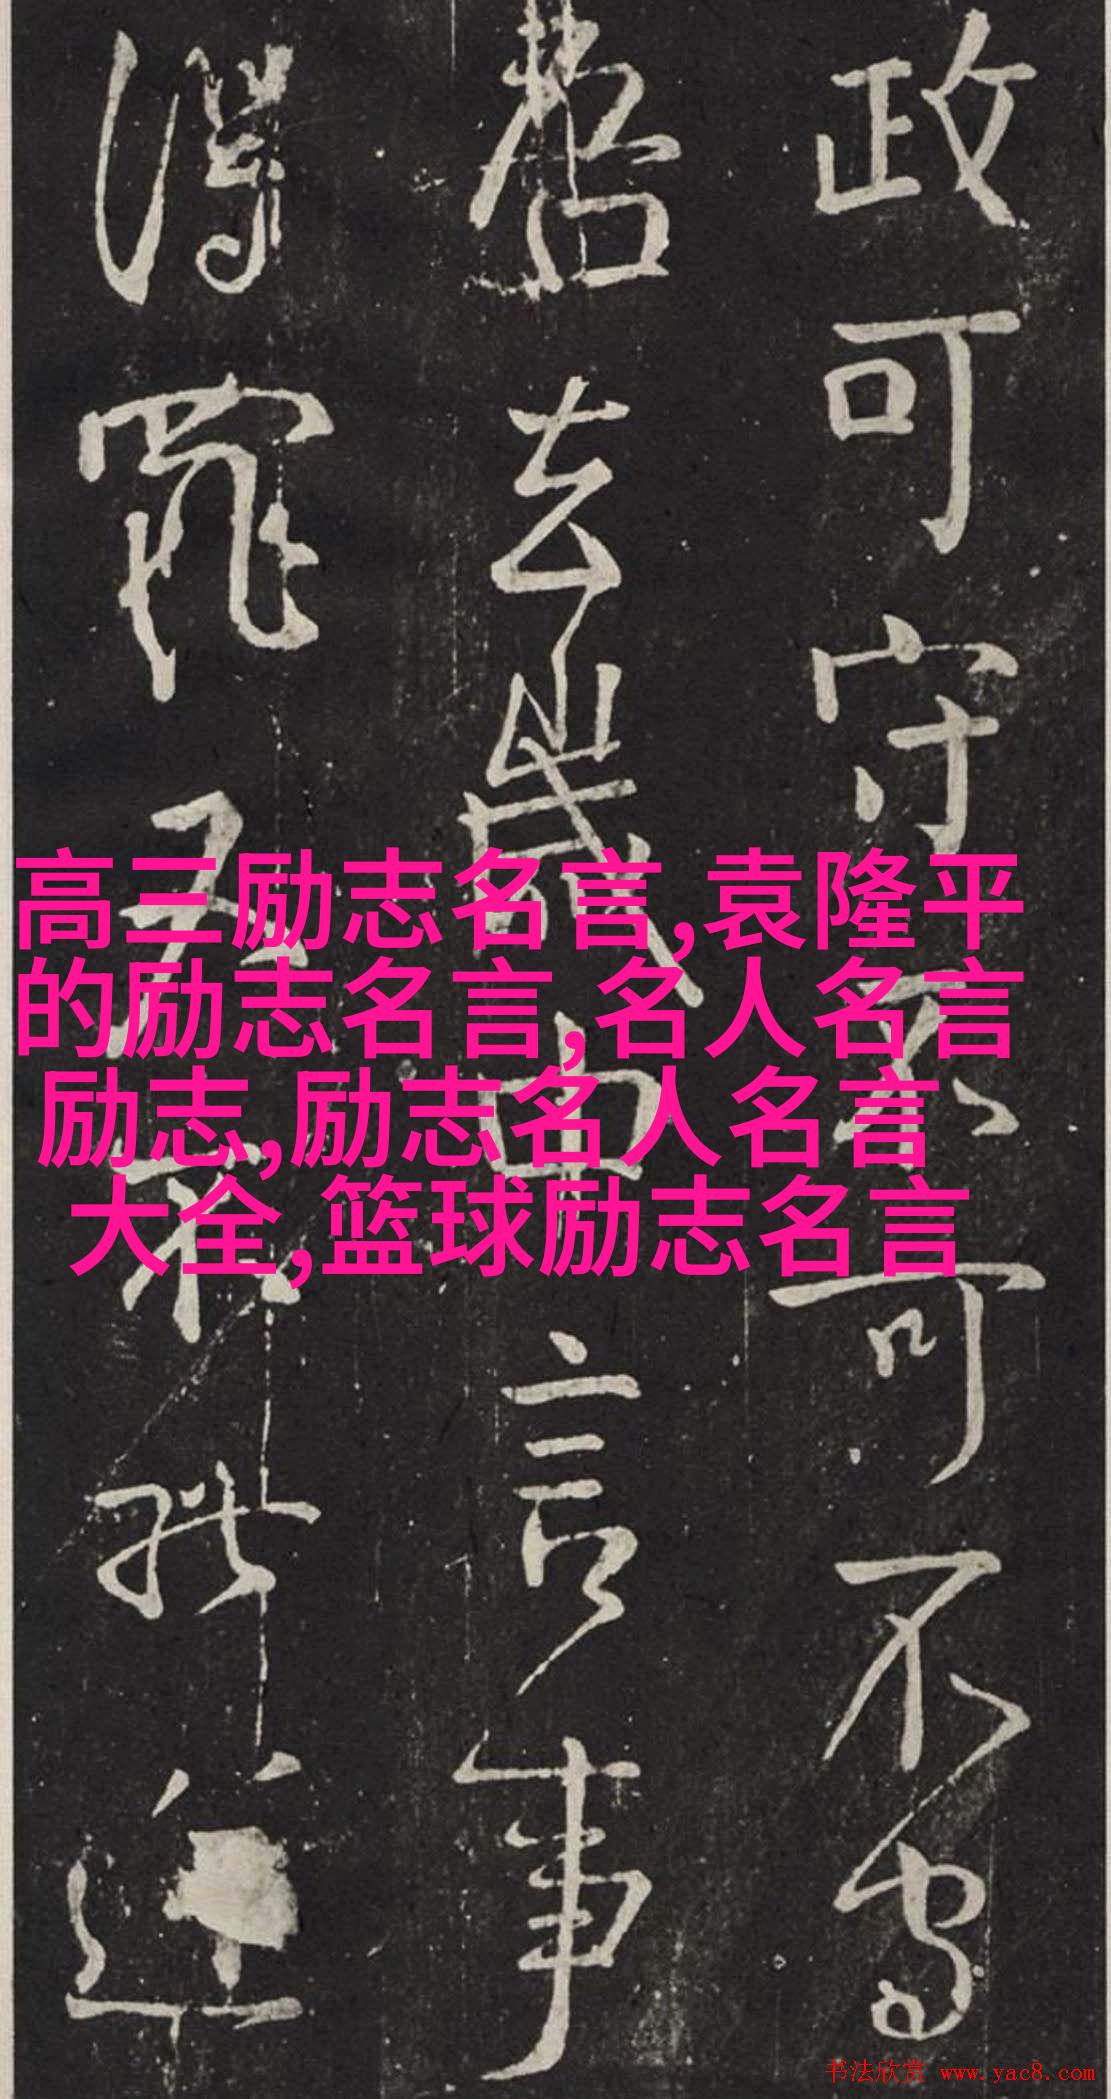 政可守不可不守
吾去歲中言事
得罪又不能逆
高三励志名言,袁隆平
的励志名言,名人名言
励志,励志名人名言
大全,篮球励志名言
书法欣赏 www.yac8.com